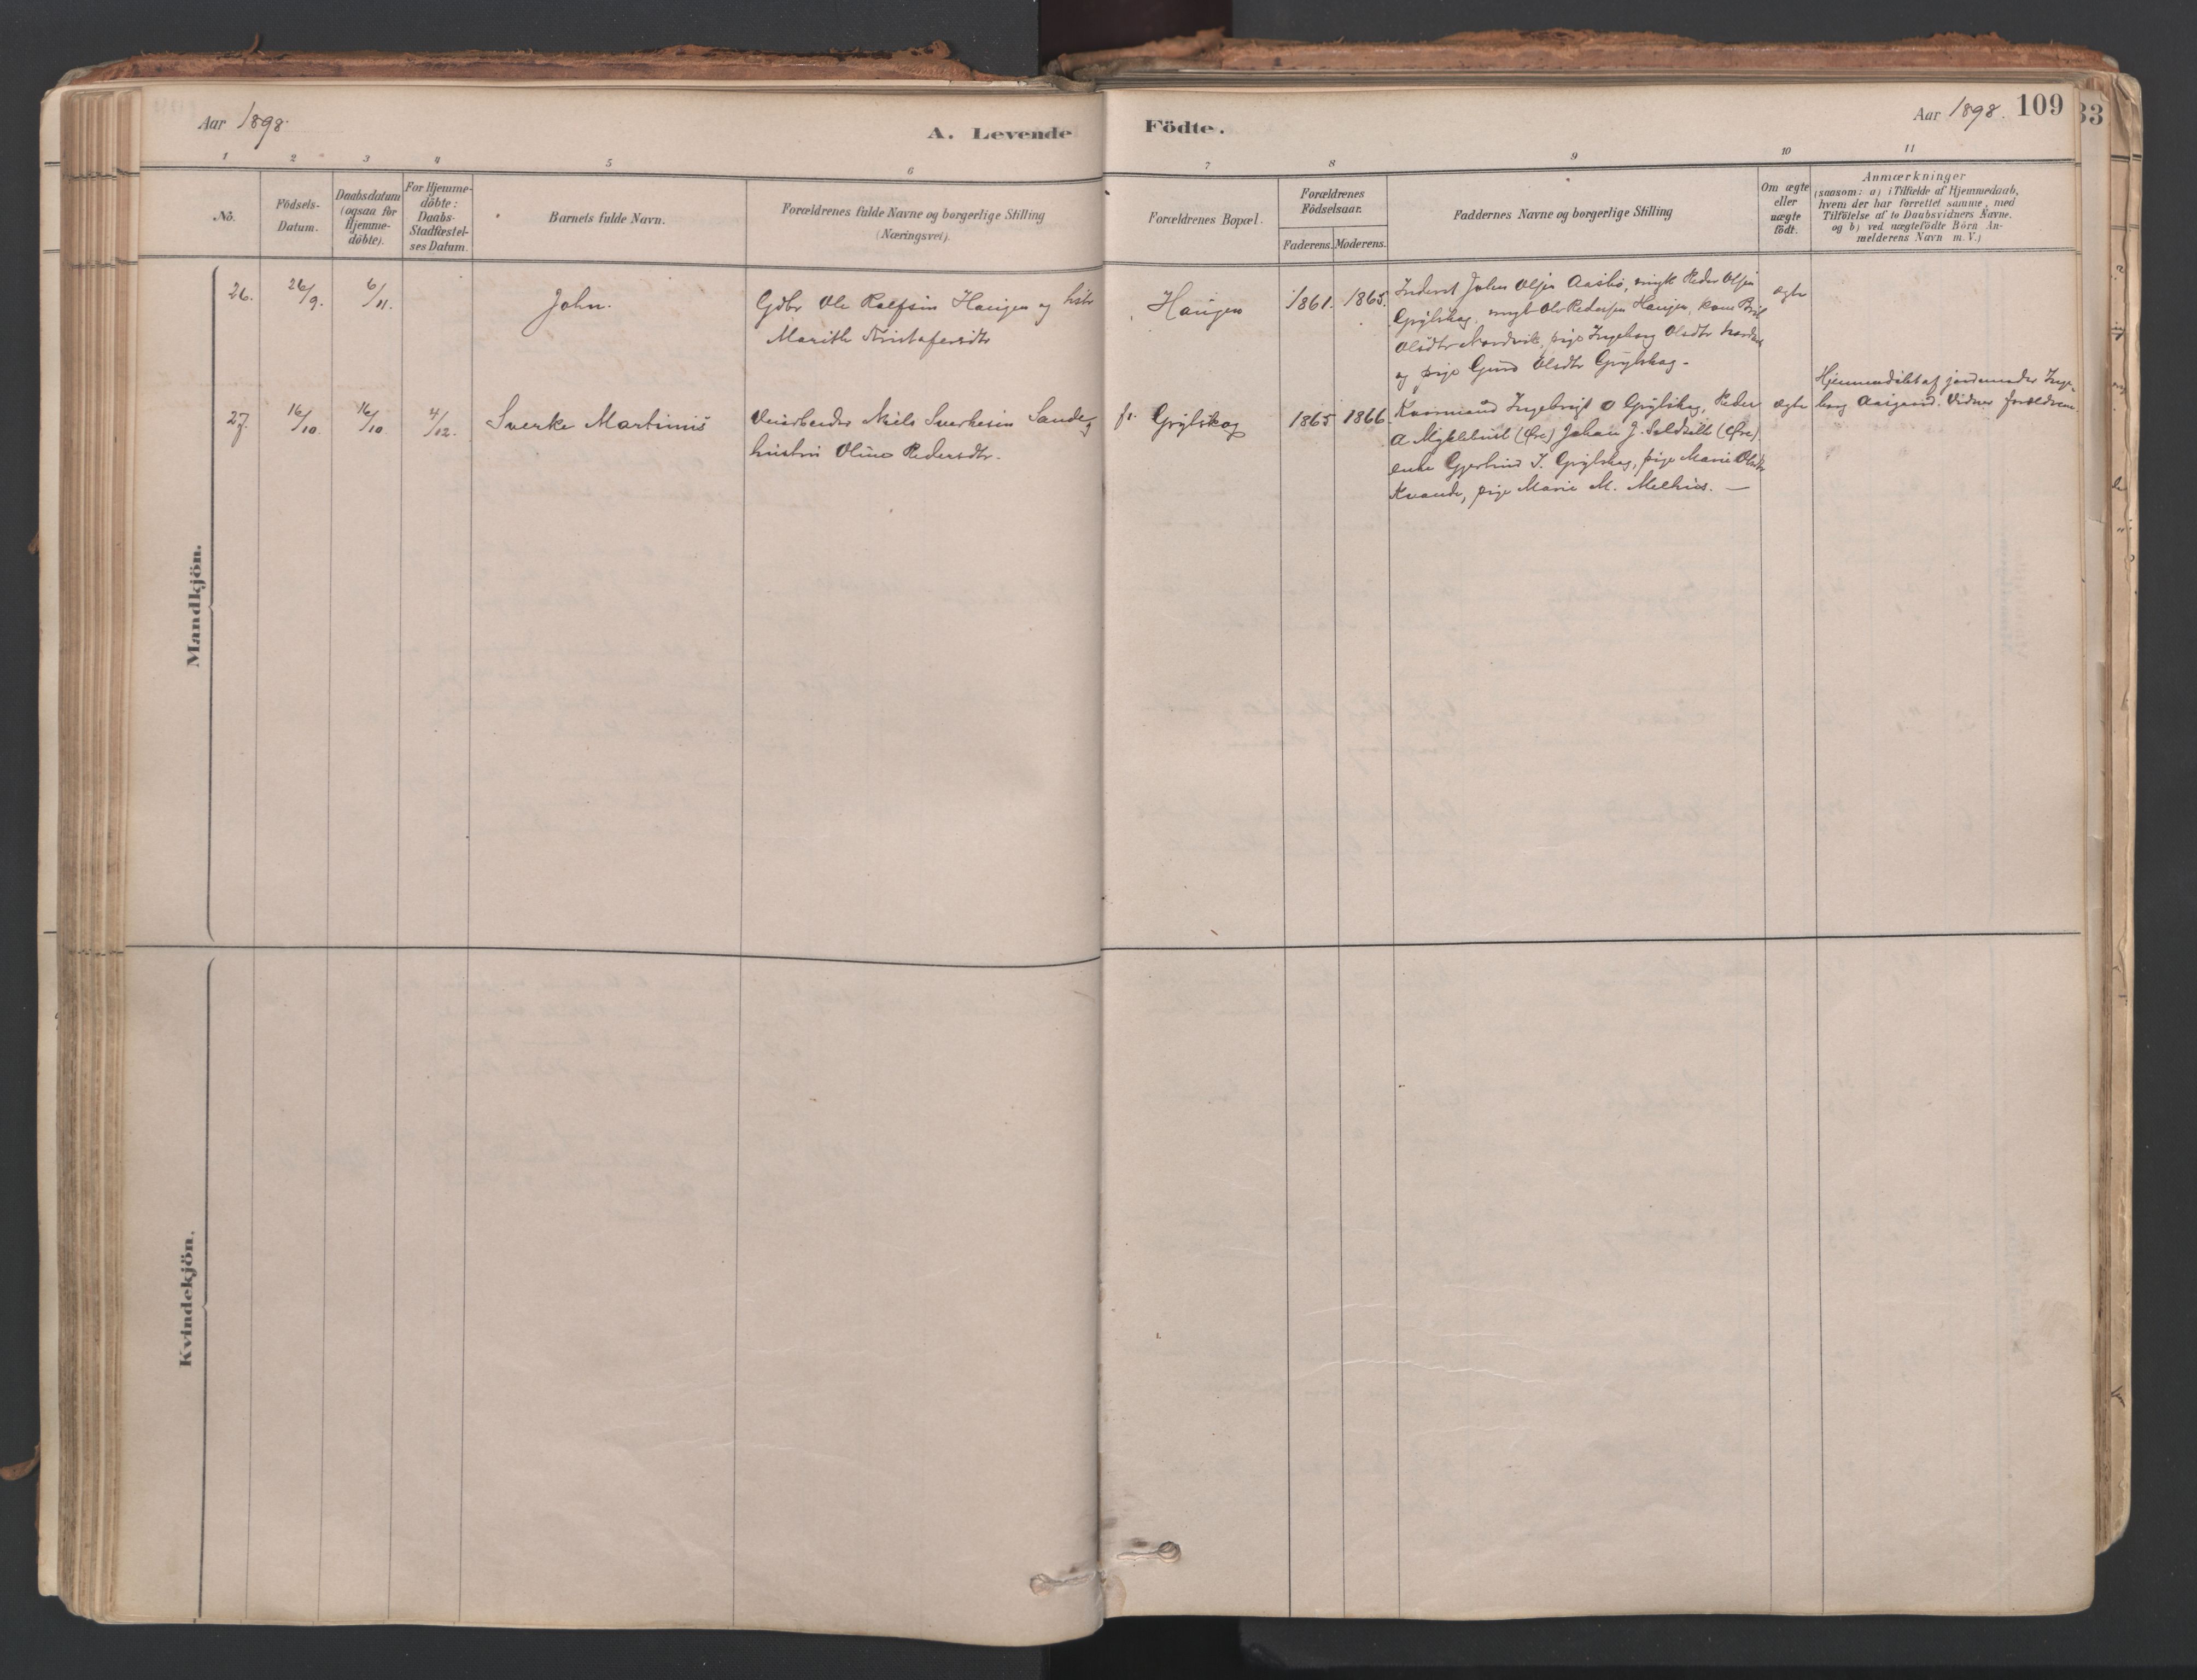 Aar 1898.
A. Levende Födte.
Aar 1898. 109
33
1 2 3 4 5 6 7 8 9 10 11
No.
Födsels-
Datum.
Daabsdatum
(ogsaa for
Hjemme-
döbte).
For Hjemme-
döbte:
Daabs-
Stadfæstel-
ses Datum.
Barnets fulde Navn.
Forældrenes fulde Navne og borgerlige Stilling
(Næringsvei).
Forældrenes Bopæl.
Forældrenes
Födselsaar.
Faderens. Moderens.
Faddernes Navne og borgerlige Stilling
Om ægte
eller
uægte
födt.
Anmærkninger
(saasom: a) i Tilfælde af Hjemmedaab,
hvem der har forrettet samme, med
Tilföielse af to Daabsvidners Navne.
og b) ved uægtefödte Börn An-
melderens Navn m. V.)
Mandkjön.
26. 26/9. 6/11. John. Gdbr Ole Rolfsen Haugen og hstr
Marith Kristofersdtr
Haugen 1861. 1865.
Inderst John Olsen Aasbö, ungk Peder Olsen
Grylskog, ungk Ole Pedersen Haugen, kone Brit
Olsdtr Nordvik, pige Ingeborg Olsdtr
og pige Guro Olsdtr Grylskog.
ægte
27. 16/10. 16/10 4/12. Sverke Martinus Veiarbeider Niels Sverkesen Sande og
hustru Oline Pedersdtr.
f. Grylskog 1865 1866.
Kaarmand Ingebrigt O Grylskog, Peder
A Myklebust (Öre) Johan J. (Öre).
enke Gjertrud I. Grylskog, pige Marie Olsdtr
Kvande, pige Marie M. Melhus. —
ægte
Hjemmedöbt af jordemoder Inge-
borg Aasgaard. Vidner forældrene.
Kvindekjön.